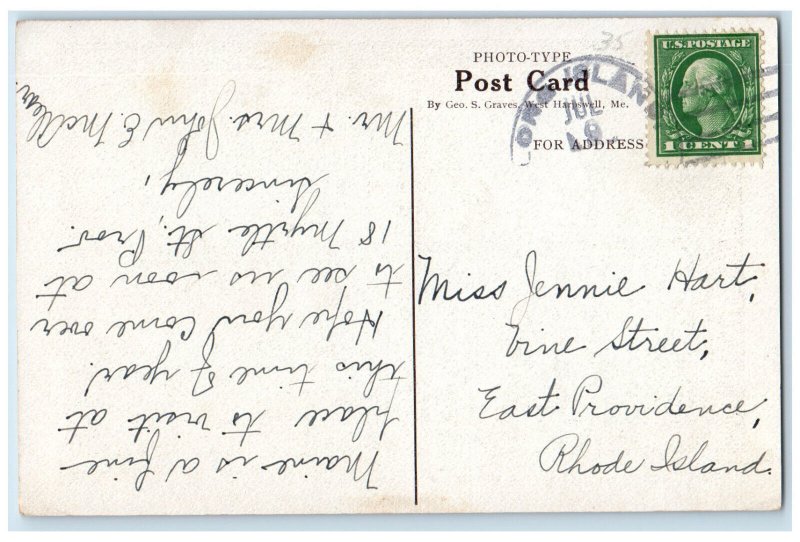 PHOTO-TYPE
Post Card
By Geo. S. Graves, West Harpswell, Me.
FOR ADDRESS
U.S. POSTAGE
1 CENT 1
LONG ISLAND
JUL
35
Miss Jennie Hart,
Vine Street,
East Providence,
Rhode Island.
Maine is a fine
place to visit at
this time of year.
Hope you come over
to see us soon at
18 Myrtle St., Prov.
Sincerely,
Mr. + Mrs. John E.